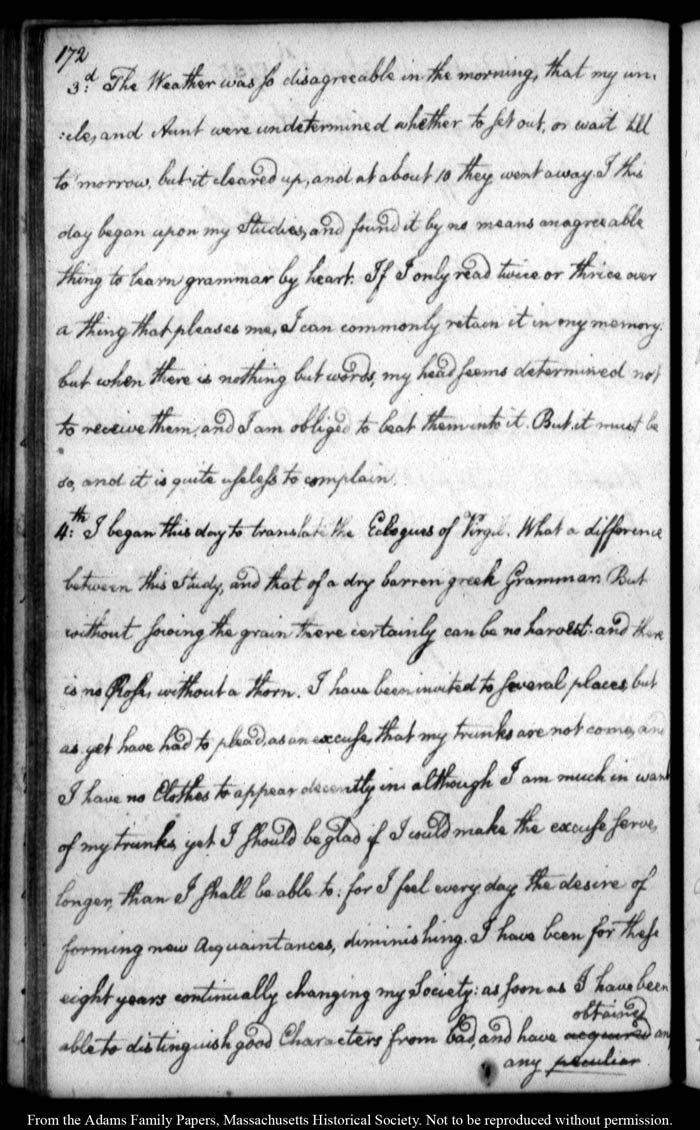 172
3.d The Weather was so disagreeable in the morning, that my un-
:cle, and Aunt were undetermined whether to set out, or wait till
to morrow, but it cleared up, and at about 10 they went away. I this
day began upon my Studies, and found it by no means an agreeable
thing to learn grammar by heart. If I only read twice or thrice over
a thing that pleases me, I can commonly retain it in my memory:
but when there is nothing but words, my head seems determined not
to receive them, and I am obliged to beat them into it. But it must be
so, and it is quite useless to complain.
4:th I began this day to translate the Eclogues of Virgil. What a difference
between this Study, and that of a dry barren greek Grammar. But
without sowing the grain there certainly can be no harvest: and there
is no Rose, without a thorn. I have been invited to several places, but
as yet have had to plead, as an excuse, that my trunks are not come, and
I have no Clothes to appear decently in: although I am much in want
of my trunks, yet I should be glad if I could make the excuse serve,
longer, than I shall be able to: for I feel every day, the desire of
forming new Acquaintances, diminishing. I have been for these
eight years continually changing my Society: as soon as I have been
obtained
able to distinguish good Characters from bad, and have acquired any
any peculiar
From the Adams Family Papers, Massachusetts Historical Society. Not to be reproduced without permission.